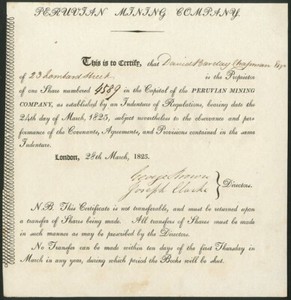 PERUVIAN MINING COMPANY.
This is to Certify, that Daniel Barclay Chapman Esqr
of 23 Lombard Street is the Proprietor
of one Share numbered 4559 in the Capital of the PERUVIAN MINING
COMPANY, as established by an Indenture of Regulations, bearing date the
24th day of March, 1825, subject nevertheless to the observance and per-
formance of the Covenants, Agreements, and Provisions contained in the same
Indenture.
London, 28th March, 1825.
George Brown
Joseph Clarke
Directors.
N.B. This Certificate is not transferable, and must be returned upon
a transfer of Shares being made. All transfer of Shares must be made
in such manner as may be prescribed by the Directors.
No Transfer can be made within ten days of the first Thursday in
March in any year, during which period the Books will be shut.